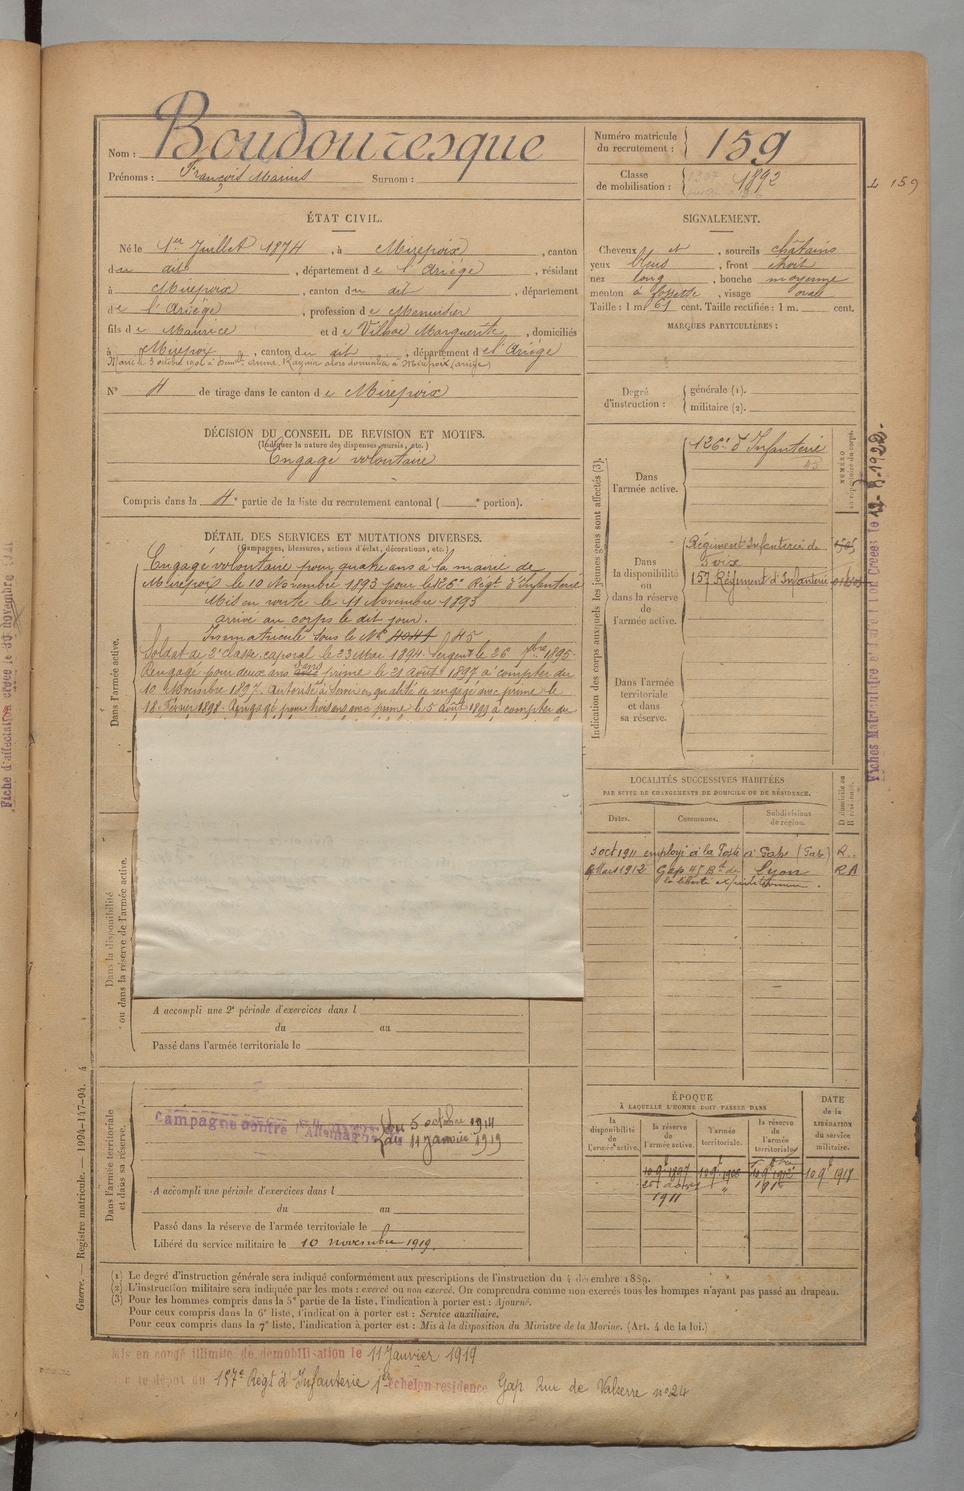 Nom : Boudouresque
Prénoms : François Marius Surnom :
Numéro matricule du recrutement : 159
Classe de mobilisation : 1892
159
ÉTAT CIVIL.
Né le 1er Juillet 1874, à Mirepoix, canton
du dit, département de l'Ariège, résidant
à Mirepoix, canton du dit, département
de l'Ariège, profession de Menuisier
fils de Maurice et de Vilhac Marguerite, domiciliés
à Mirepoix, canton du dit, département de l'Ariège
Marié le 3 octobre à Anna domiciliée à Mirepoix (Ariège)
N° 4 de tirage dans le canton de Mirepoix
SIGNALEMENT.
Cheveux et, sourcils châtains
yeux bleus, front étroit
nez long, bouche moyenne
menton à fossette, visage oval
Taille : 1 m. 61 cent. Taille rectifiée : 1 m. cent.
MARQUES PARTICULIÈRES :
Degré d'instruction : générale (1).
militaire (2).
DÉCISION DU CONSEIL DE REVISION ET MOTIFS.
(Indiquer la nature des dispenses, sursis, etc.)
Engagé volontaire
Compris dans la 4e partie de la liste du recrutement cantonal ( e portion).
DÉTAIL DES SERVICES ET MUTATIONS DIVERSES.
(Campagnes, blessures, actions d'éclat, décorations, etc.)
Dans l'armée active.
Engagé volontaire pour quatre ans à la mairie de
Mirepoix le 10 Novembre 1893 pour le 126e Régt d'Infanterie
Mis en route le 11 Novembre 1893
arrivé au corps le dit jour.
Immatriculé sous le No 45
Soldat de 2e classe, caporal le 23 Mai 1894. Sergent le 26 7bre 1895.
Rengagé pour deux ans avec prime le 21 août 1897 à compter du
10 Novembre 1897. Autorisé à servir en qualité de engagé avec prime le
18 Février 1898. Rengagé pour trois ans avec prime le 5 Août 1899 à compter du
Dans la disponibilité
ou dans la réserve de l'armée active.
A accompli une 2e période d'exercices dans l
du au
Passé dans l'armée territoriale le
Dans l'armée territoriale
et dans sa réserve.
Campagne contre l'Allemagne du 5 octobre 1914
au 11 janvier 1919
A accompli une période d'exercices dans l
du au
Passé dans la réserve de l'armée territoriale le
Libéré du service militaire le 10 novembre 1919.
Indication des corps auxquels les jeunes gens sont affectés (3).
NUMÉRO
au répertoire du corps.
Dans l'armée active.
126e d'Infanterie
45
Dans la disponibilité ou dans la réserve de l'armée active.
Régiment Infanterie de
Foix
157 Régiment d'Infanterie
Dans l'armée territoriale et dans sa réserve.
LOCALITÉS SUCCESSIVES HABITÉES
PAR SUITE DE CHANGEMENTS DE DOMICILE OU DE RÉSIDENCE.
Dates. Communes. Subdivisions de région. Domicile ou Résidence.
3 oct 1911 employé à la Poste à Gap (Gap) R.
Mars 1912 Gap 45 Bd de Lyon RA
la liberté
ÉPOQUE
À LAQUELLE L'HOMME DOIT PASSER DANS
la disponibilité de l'armée active. la réserve de l'armée active. l'armée territoriale. la réserve de l'armée territoriale.
DATE de la LIBÉRATION du service militaire.
10 9e 1897
1911
10 9e 1917
(1) Le degré d'instruction générale sera indiqué conformément aux prescriptions de l'instruction du 4 décembre 1889.
(2) L'instruction militaire sera indiquée par les mots : exercé ou non exercé. On comprendra comme non exercés tous les hommes n'ayant pas passé au drapeau.
(3) Pour les hommes compris dans la 5e partie de la liste, l'indication à porter est : Ajourné.
Pour ceux compris dans la 6e liste, l'indication à porter est : Service auxiliaire.
Pour ceux compris dans la 7e liste, l'indication à porter est : Mis à la disposition du Ministre de la Marine. (Art. 4 de la loi.)
Guerre. — Registre matricule. — 1994-147-94. 4
Mis en congé illimité de démobilisation le 11 Janvier 1919
le dépôt du 157e Régt d'Infanterie 1er échelon résidence Gap Rue de Valserre no 24
Fiche d'affectation créée le 30 novembre